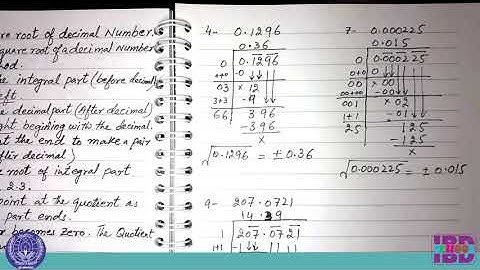 re root of decimal Number.
quare root of a decimal Number
hod.
he integral part (before decimal)
eft.
he decimal part (After decimal)
ght begining with the decimal.
at the end to make a pair
fter decimal)
e root of integral part
2.3.
point at the quotient as
part ends.
r becomes zero. The Quotient
4- 0.1296
0.36
0 0.1296
+0 -0
03 × 12
3+3 -9
66 396
-396
×
√0.1296 = ± 0.36
9- 207.0721
14.39
1 207.0721
1+1 -1
7- 0.000225
0.015
0 0.000225
0+0 0
00 × 00
00+00 -00
001 × 02
1+1 -01
25 125
-125
×
√0.000225 = ± 0.015
IBD